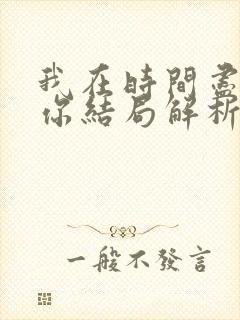 我在時間盡
你結局解析
一般不發言